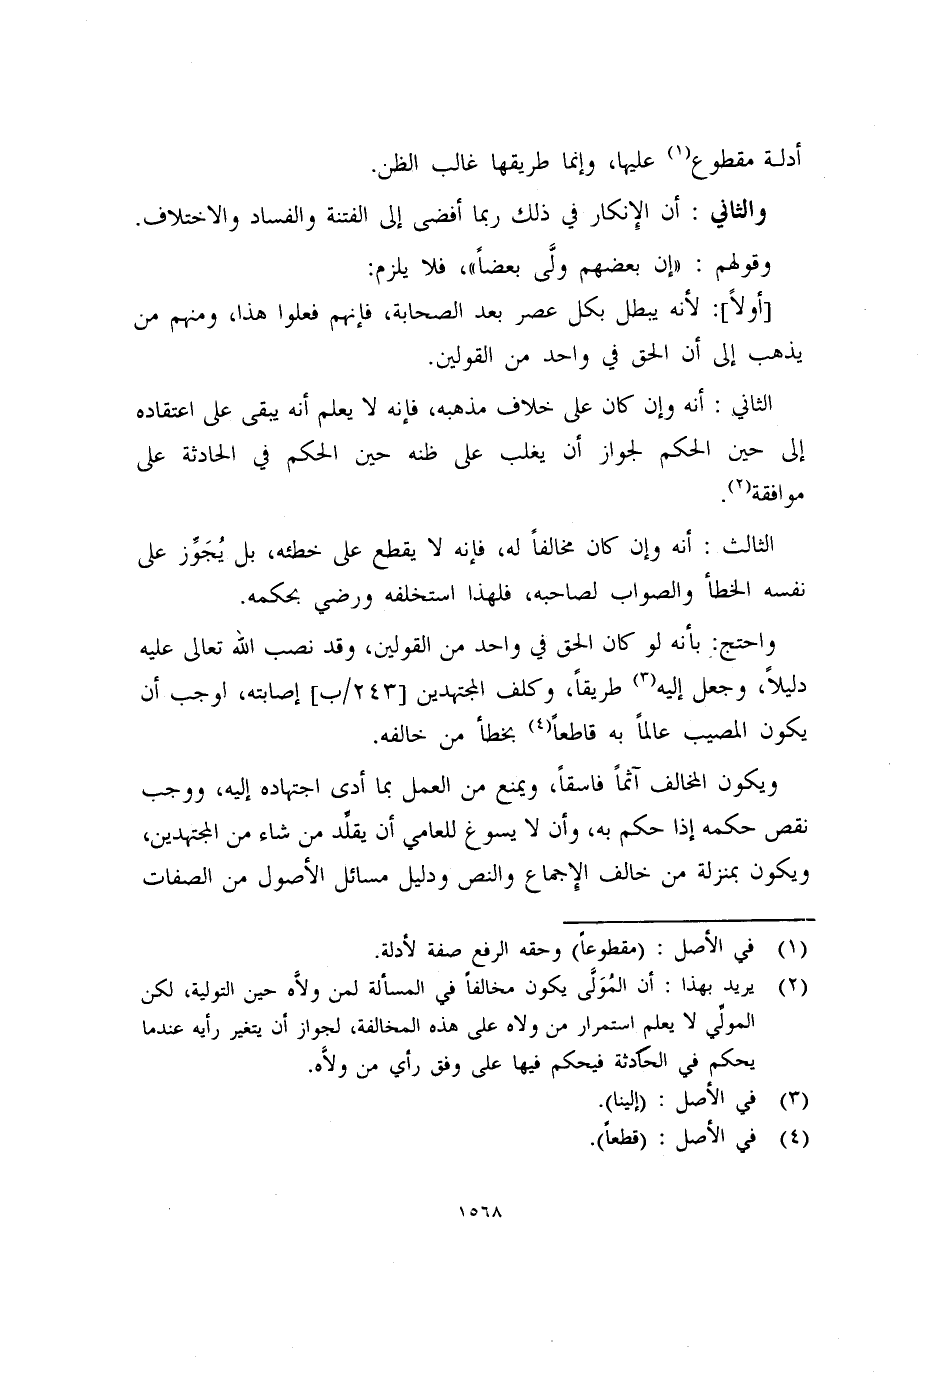 أدلة مقطوع(١) عليها، وإنما طريقها غالب الظن.
والثاني : أن الإنكار في ذلك ربما أفضى إلى الفتنة والفساد والاختلاف.
وقولهم : «إن بعضهم ولَّى بعضاً»، فلا يلزم:
[أولاً]: لأنه يبطل بكل عصر بعد الصحابة، فإنهم فعلوا هذا، ومنهم من
يذهب إلى أن الحق في واحد من القولين.
الثاني : أنه وإن كان على خلاف مذهبه، فإنه لا يعلم أنه يبقى على اعتقاده
إلى حين الحكم لجواز أن يغلب على ظنه حين الحكم في الحادثة على
موافقة(٢).
الثالث : أنه وإن كان مخالفاً له، فإنه لا يقطع على خطئه، بل يُجَوِّز على
نفسه الخطأ والصواب لصاحبه، فلهذا استخلفه ورضي بحكمه.
واحتج: بأنه لو كان الحق في واحد من القولين، وقد نصب الله تعالى عليه
دليلاً، وجعل إليه(٣) طريقاً، وكلف المجتهدين [٢٤٣/ب] إصابته، اوجب أن
يكون المصيب عالماً به قاطعاً(٤) بخطأ من خالفه.
ويكون المخالف آثماً فاسقاً، ويمنع من العمل بما أدى اجتهاده إليه، ووجب
نقص حكمه إذا حكم به، وأن لا يسوغ للعامي أن يقلِّد من شاء من المجتهدين،
ويكون بمنزلة من خالف الإجماع والنص ودليل مسائل الأصول من الصفات
(١) في الأصل : (مقطوعاً) وحقه الرفع صفة لأدلة.
(٢) يريد بهذا : أن المُوَلَّى يكون مخالفاً في المسألة لمن ولاَّه حين التولية، لكن
المولِّي لا يعلم استمرار من ولاه على هذه المخالفة، لجواز أن يتغير رأيه عندما
يحكم في الحادثة فيحكم فيها على وفق رأي من ولاَّه.
(٣) في الأصل : (إلينا).
(٤) في الأصل : (قطعاً).
١٥٦٨